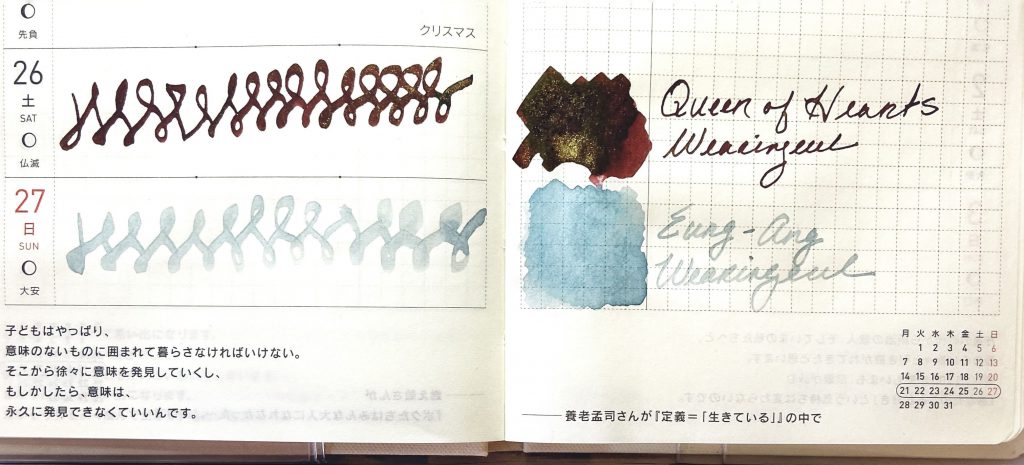 先負
クリスマス
26
土
SAT
仏滅
27
日
SUN
大安
子どもはやっぱり、
意味のないものに囲まれて暮らさなければいけない。
そこから徐々に意味を発見していくし、
もしかしたら、意味は、
永久に発見できなくていいんです。
Queen of Hearts
Wearingeul
Eung-Ang
Wearingeul
月 火 水 木 金 土 日
1 2 3 4 5 6
7 8 9 10 11 12 13
14 15 16 17 18 19 20
21 22 23 24 25 26 27
28 29 30 31
──養老孟司さんが『定義=「生きている」』の中で